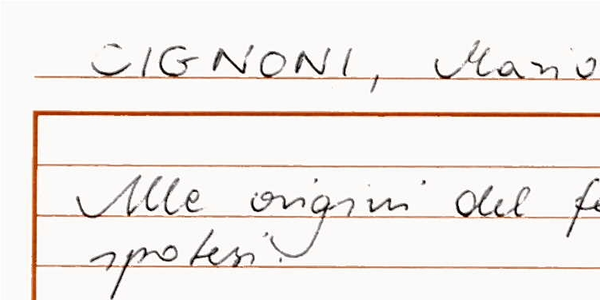 CIGNONI, Mario
Alle origini del
ipotesi.